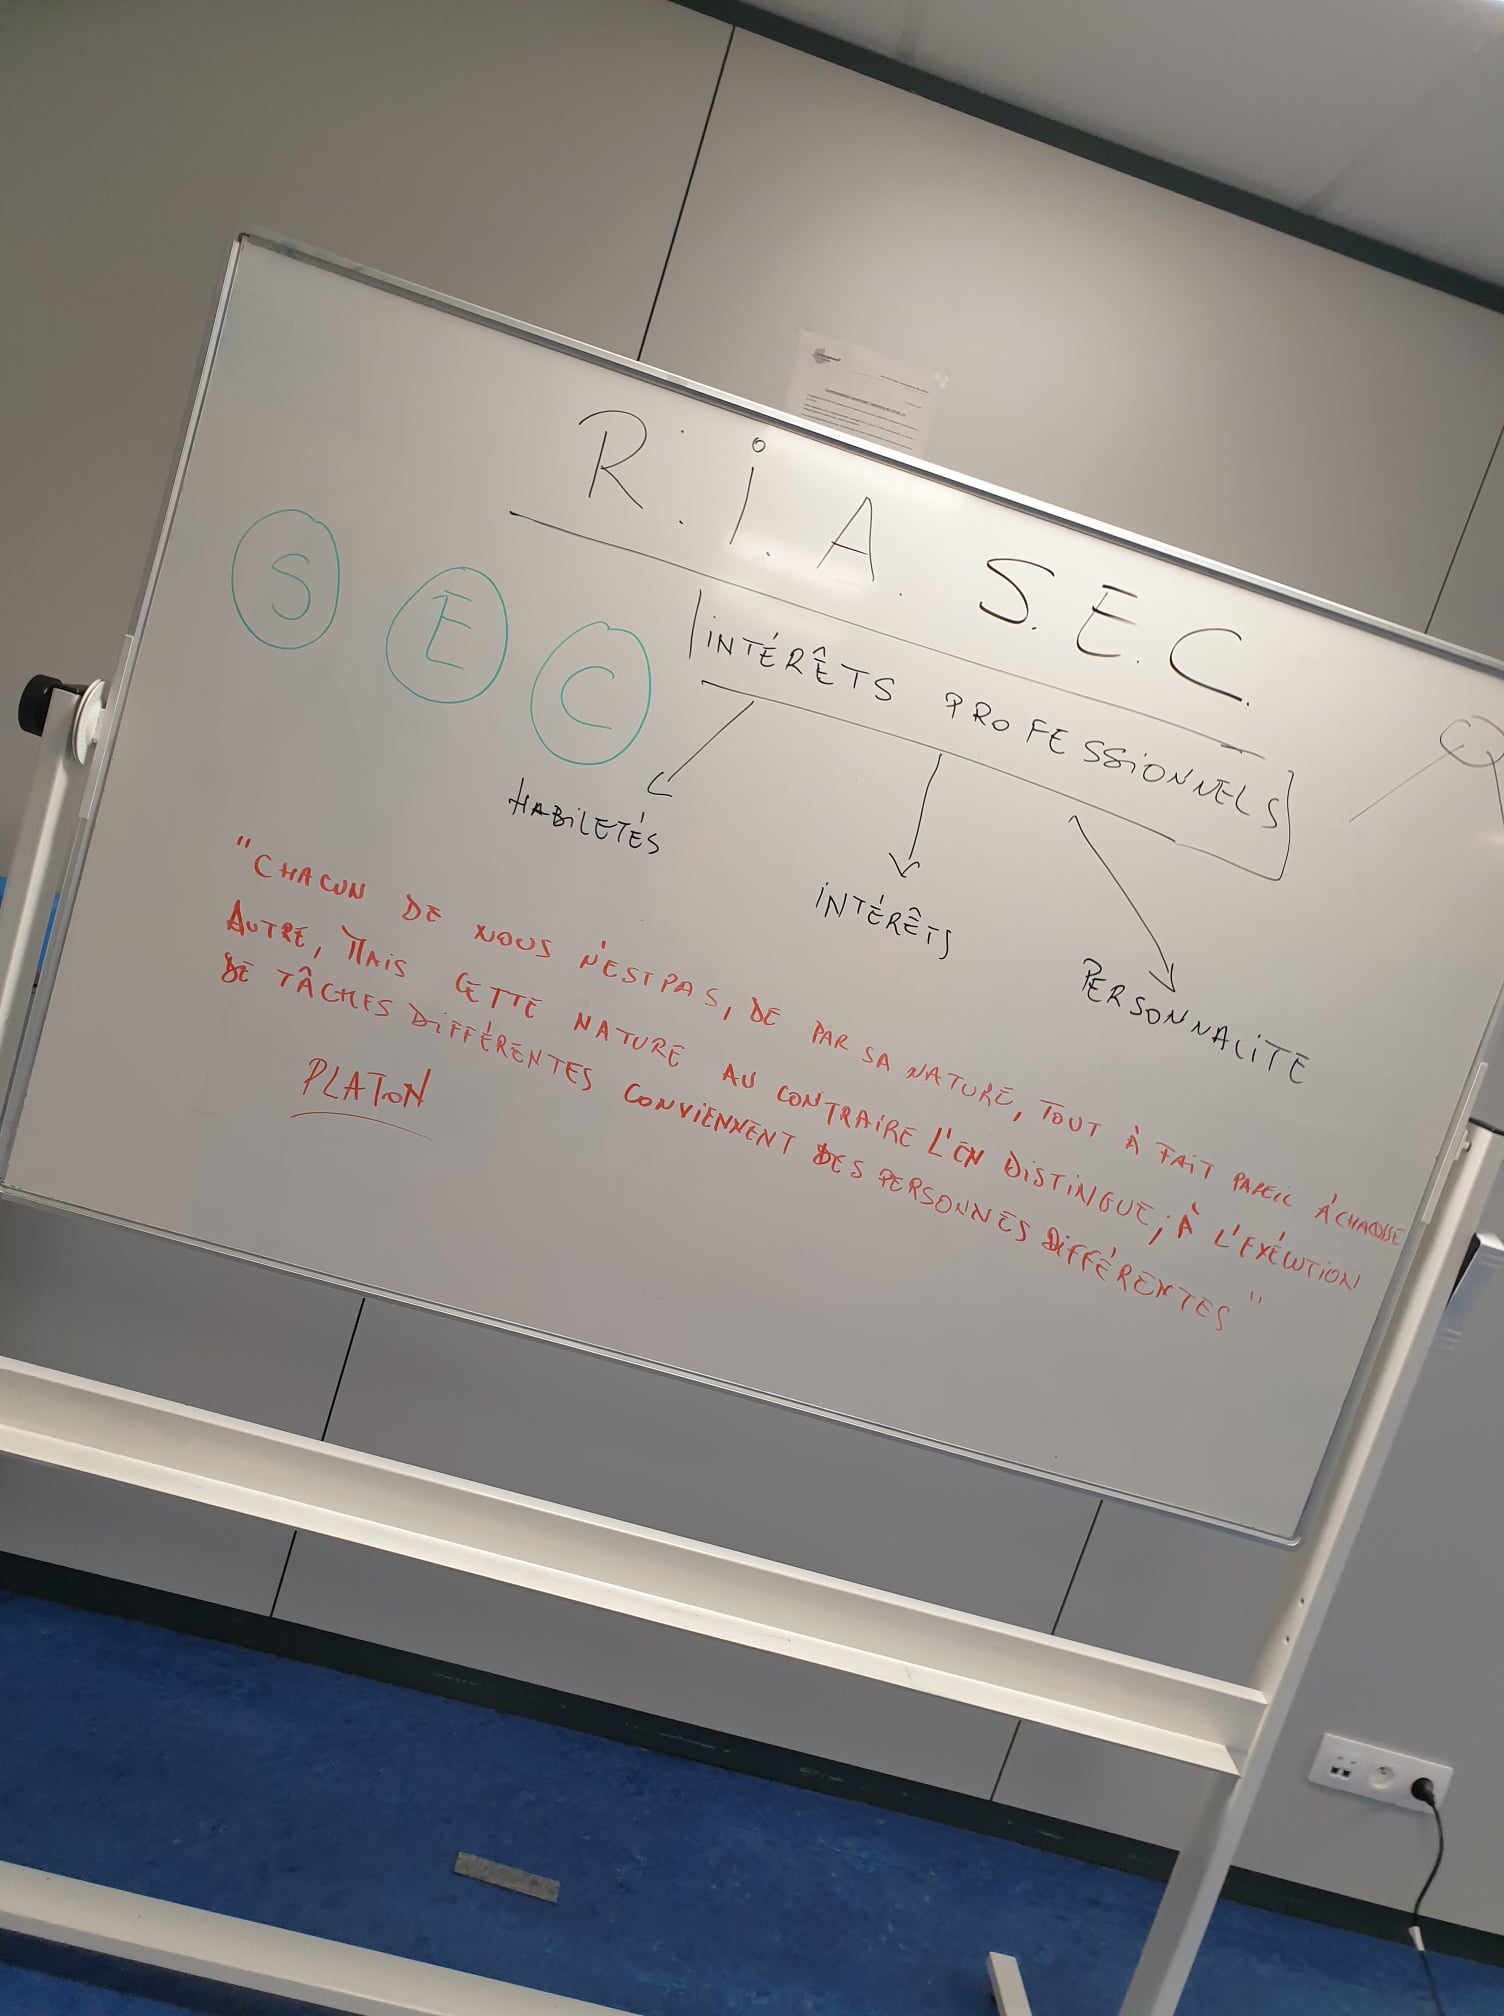 R.I.A.S.E.C.
S E C
INTÉRÊTS PROFESSIONNELS
HABILETÉS
INTÉRÊTS
PERSONNALITE
"CHACUN DE NOUS N'EST PAS, DE PAR SA NATURE, TOUT À FAIT PAREIL À CHAQUE
AUTRE, MAIS CETTE NATURE AU CONTRAIRE L'EN DISTINGUE; À L'EXÉCUTION
DE TÂCHES DIFFÉRENTES CONVIENNENT DES PERSONNES DIFFÉRENTES"
PLATON